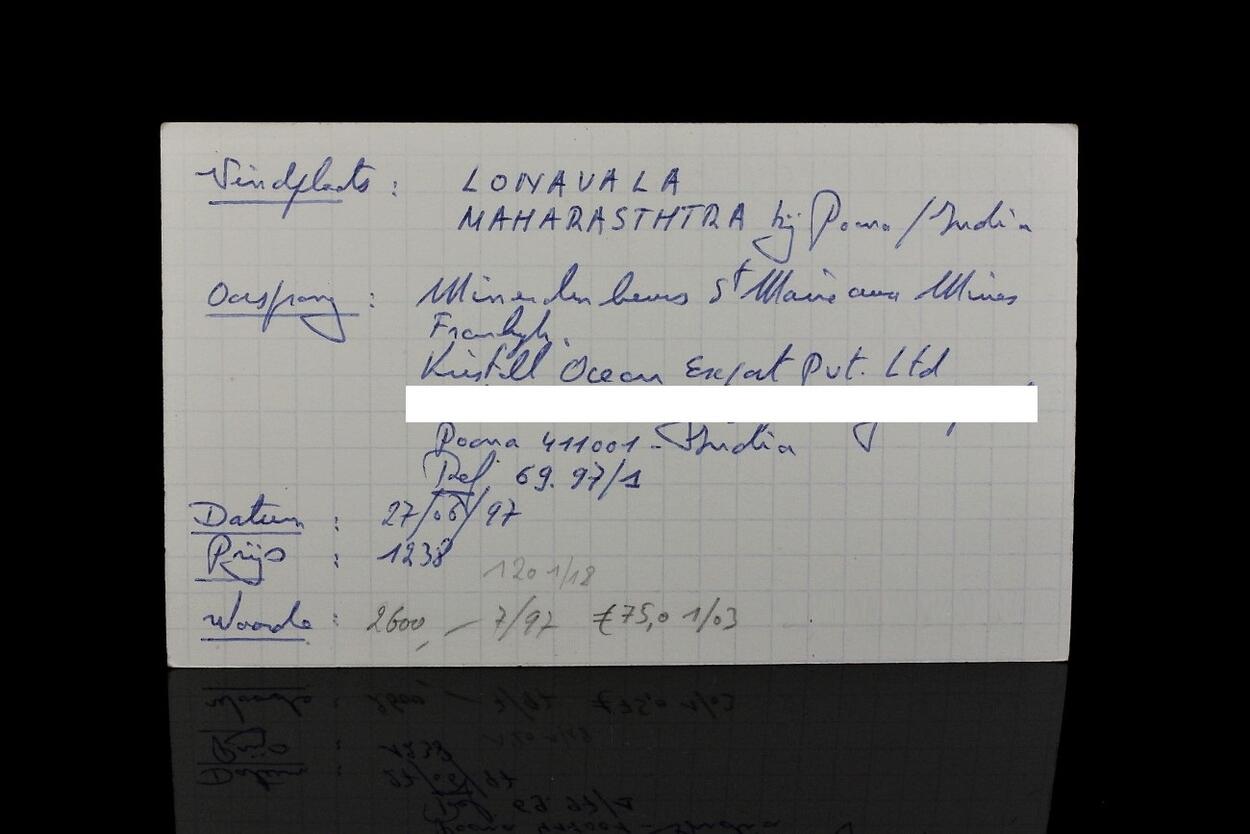 Vindplaats : LONAVALA
MAHARASTHTRA bij Poona / India
Oorsprong : Mineralen beurs St Marie aux Mines
Frankrijk.
Kristall Ocean Export Pvt. Ltd
Poona 411001 - India
Ref. 69.97/1
Datum : 27/06/97
Prijs : 1238
120 1/18
Waarde : 2600 - 7/97 €75,0 1/03